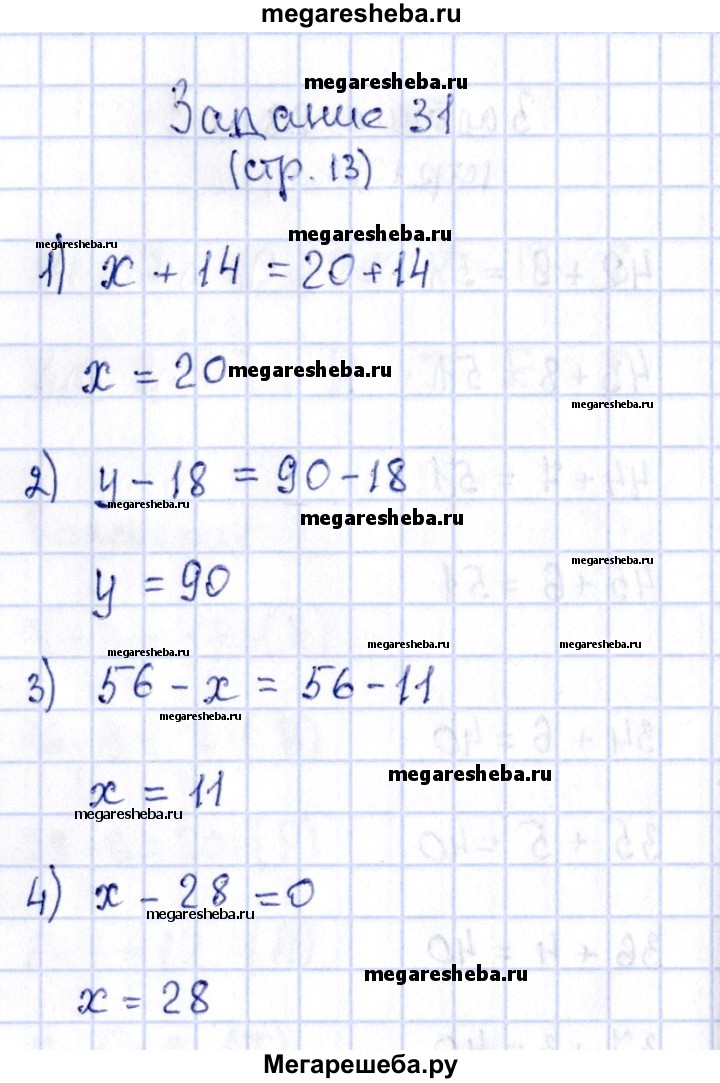 megaresheba.com
megaresheba.ru
Задание 31
(стр. 13)
megaresheba.ru
megaresheba.ru
1) x + 14 = 20 + 14
x = 20 megaresheba.ru
megaresheba.ru
2) y - 18 = 90 - 18
megaresheba.ru
megaresheba.ru
megaresheba.ru
y = 90
megaresheba.ru megaresheba.ru
megaresheba.ru
3) 56 - x = 56 - 11
megaresheba.ru
megaresheba.ru
x = 11
megaresheba.ru
4) x - 28 = 0
megaresheba.ru
megaresheba.ru
x = 28
Мегарешеба.ру